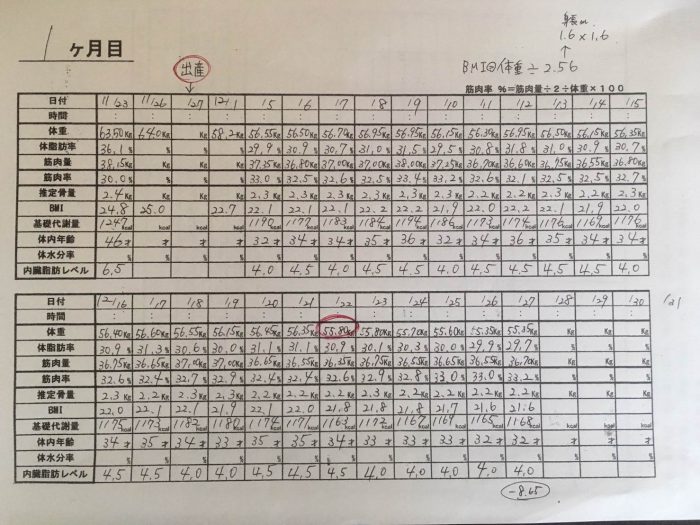 身長m
1.6×1.6
↑
BMI@体重÷2.56
1ヶ月目
出産
筋肉率 %=筋肉量÷2÷体重×100
日付 11/23 11/26 1/27 12/1 1/5 1/6 1/7 1/8 1/9 1/10 1/11 1/12 1/13 1/14 1/15
時間 : : : : : : : : : : : : : : :
体重 63.50Kg 64.0Kg Kg 58.2Kg 56.55Kg 56.50Kg 56.70Kg 56.95Kg 56.95Kg 56.15Kg 56.30Kg 56.95Kg 56.50Kg 56.15Kg 56.35Kg
体脂肪率 36.1% % % % 29.9% 30.9% 30.7% 31.0% 31.5% 29.5% 30.8% 31.8% 31.0% 30.9% 30.7%
筋肉量 38.15Kg Kg Kg Kg 37.35Kg 36.80Kg 37.00Kg 37.00Kg 38.00Kg 37.25Kg 36.70Kg 36.60Kg 36.75Kg 36.55Kg 36.80Kg
筋肉率 30.0% % % % 33.0% 32.5% 32.6% 32.5% 33.4% 33.2% 32.6% 32.1% 32.5% 32.5% 32.7%
推定骨量 2.4Kg Kg Kg Kg 2.3Kg 2.3Kg 2.3Kg 2.3Kg 2.3Kg 2.3Kg 2.2Kg 2.2Kg 2.3Kg 2.2Kg 2.3Kg
BMI 24.8 25.0 22.7 22.1 22.1 22.1 22.2 22.2 21.9 22.0 22.2 22.1 21.9 22.0
基礎代謝量 1247kcal kcal kcal kcal 1190kcal 1177kcal 1183kcal 1184kcal 1194kcal 1186kcal 1173kcal 1174kcal 1176kcal 1167kcal 1176kcal
体内年齢 46才 才 才 才 32才 34才 34才 35才 36才 32才 34才 36才 35才 34才 34才
体水分率 % % % % % % % % % % % % % % %
内臓脂肪レベル 6.5 4.0 4.5 4.5 4.5 4.5 4.0 4.5 4.5 4.5 4.5 4.0
日付 12/16 1/17 1/18 1/19 1/20 1/21 1/22 1/23 1/24 1/25 1/26 1/27 1/28 1/29 1/30 1/31
時間 : : : : : : : : : : : : : : :
体重 56.40Kg 56.60Kg 56.55Kg 56.15Kg 56.45Kg 56.35Kg 55.80Kg 55.80Kg 55.70Kg 55.60Kg 55.35Kg 55.35Kg Kg Kg Kg
体脂肪率 30.9% 31.3% 30.6% 30.0% 31.1% 31.1% 30.9% 30.1% 30.3% 30.0% 29.9% 29.7% % % %
筋肉量 36.75Kg 36.65Kg 37.00Kg 37.00Kg 36.65Kg 36.55Kg 36.35Kg 36.75Kg 36.55Kg 36.65Kg 36.55Kg 36.70Kg Kg Kg Kg
筋肉率 32.6% 32.4% 32.7% 32.9% 32.4% 32.4% 32.6% 32.9% 32.8% 33.0% 33.0% 33.2% % % %
推定骨量 2.3Kg 2.2Kg 2.3Kg 2.3Kg 2.2Kg 2.2Kg 2.2Kg 2.3Kg 2.2Kg 2.2Kg 2.2Kg 2.2Kg Kg Kg Kg
BMI 22.0 22.1 22.1 21.9 22.1 22.0 21.8 21.8 21.8 21.7 21.6 21.6
基礎代謝量 1175kcal 1173kcal 1182kcal 1180kcal 1174kcal 1171kcal 1163kcal 1172kcal 1167kcal 1167kcal 1165kcal 1168kcal kcal kcal kcal
体内年齢 34才 35才 34才 33才 35才 35才 34才 33才 33才 33才 32才 32才 才 才 才
体水分率 % % % % % % % % % % % % % % %
内臓脂肪レベル 4.5 4.5 4.0 4.0 4.5 4.5 4.5 4.0 4.0 4.0 4.0 4.0
-8.65